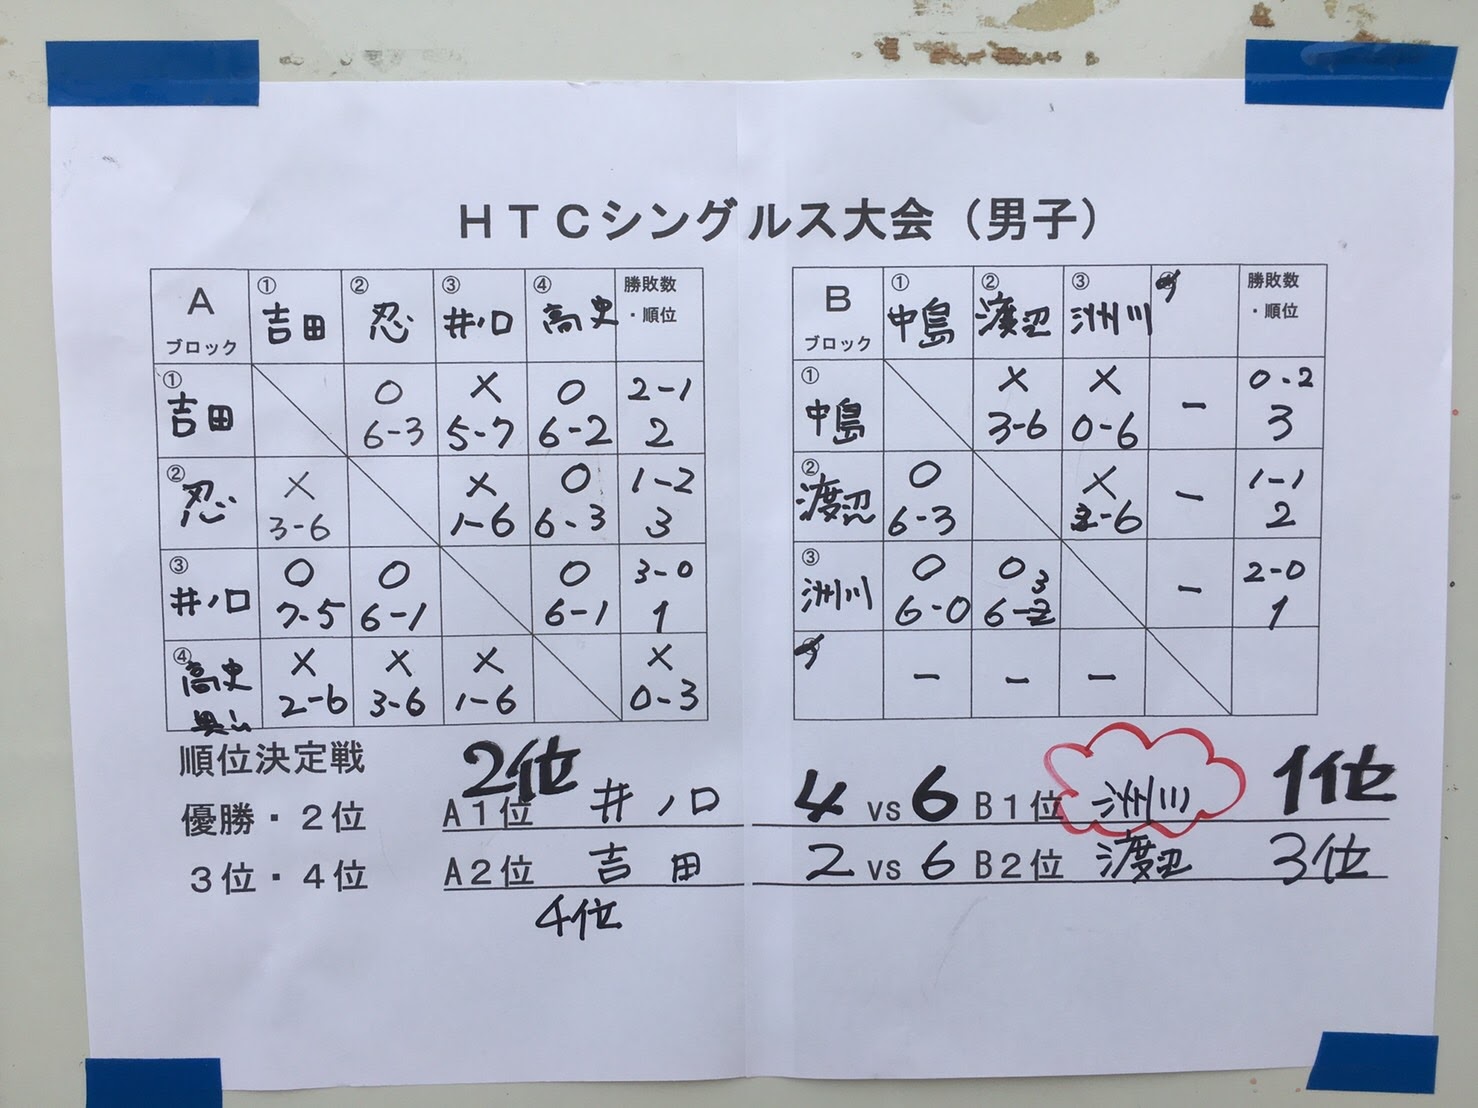 HTCシングルス大会（男子）
A ブロック ①吉田 ②忍 ③井ノ口 ④高史 勝敗数・順位
①吉田 O 6-3 X 5-7 O 6-2 2-1 2
②忍 X 3-6 X 1-6 O 6-3 1-2 3
③井ノ口 O 7-5 O 6-1 O 6-1 3-0 1
④高史 X 2-6 X 3-6 X 1-6 X 0-3
B ブロック ①中島 ②渡辺 ③洲川 勝敗数・順位
①中島 X 3-6 X 0-6 - 0-2 3
②渡辺 O 6-3 X 3-6 - 1-1 2
③洲川 O 6-0 O 6-3 - 2-0 1
- - -
順位決定戦
優勝・2位 2位 A1位 井ノ口 4 vs 6 B1位 洲川 1位
3位・4位 A2位 吉田 2 vs 6 B2位 渡辺 3位
4位